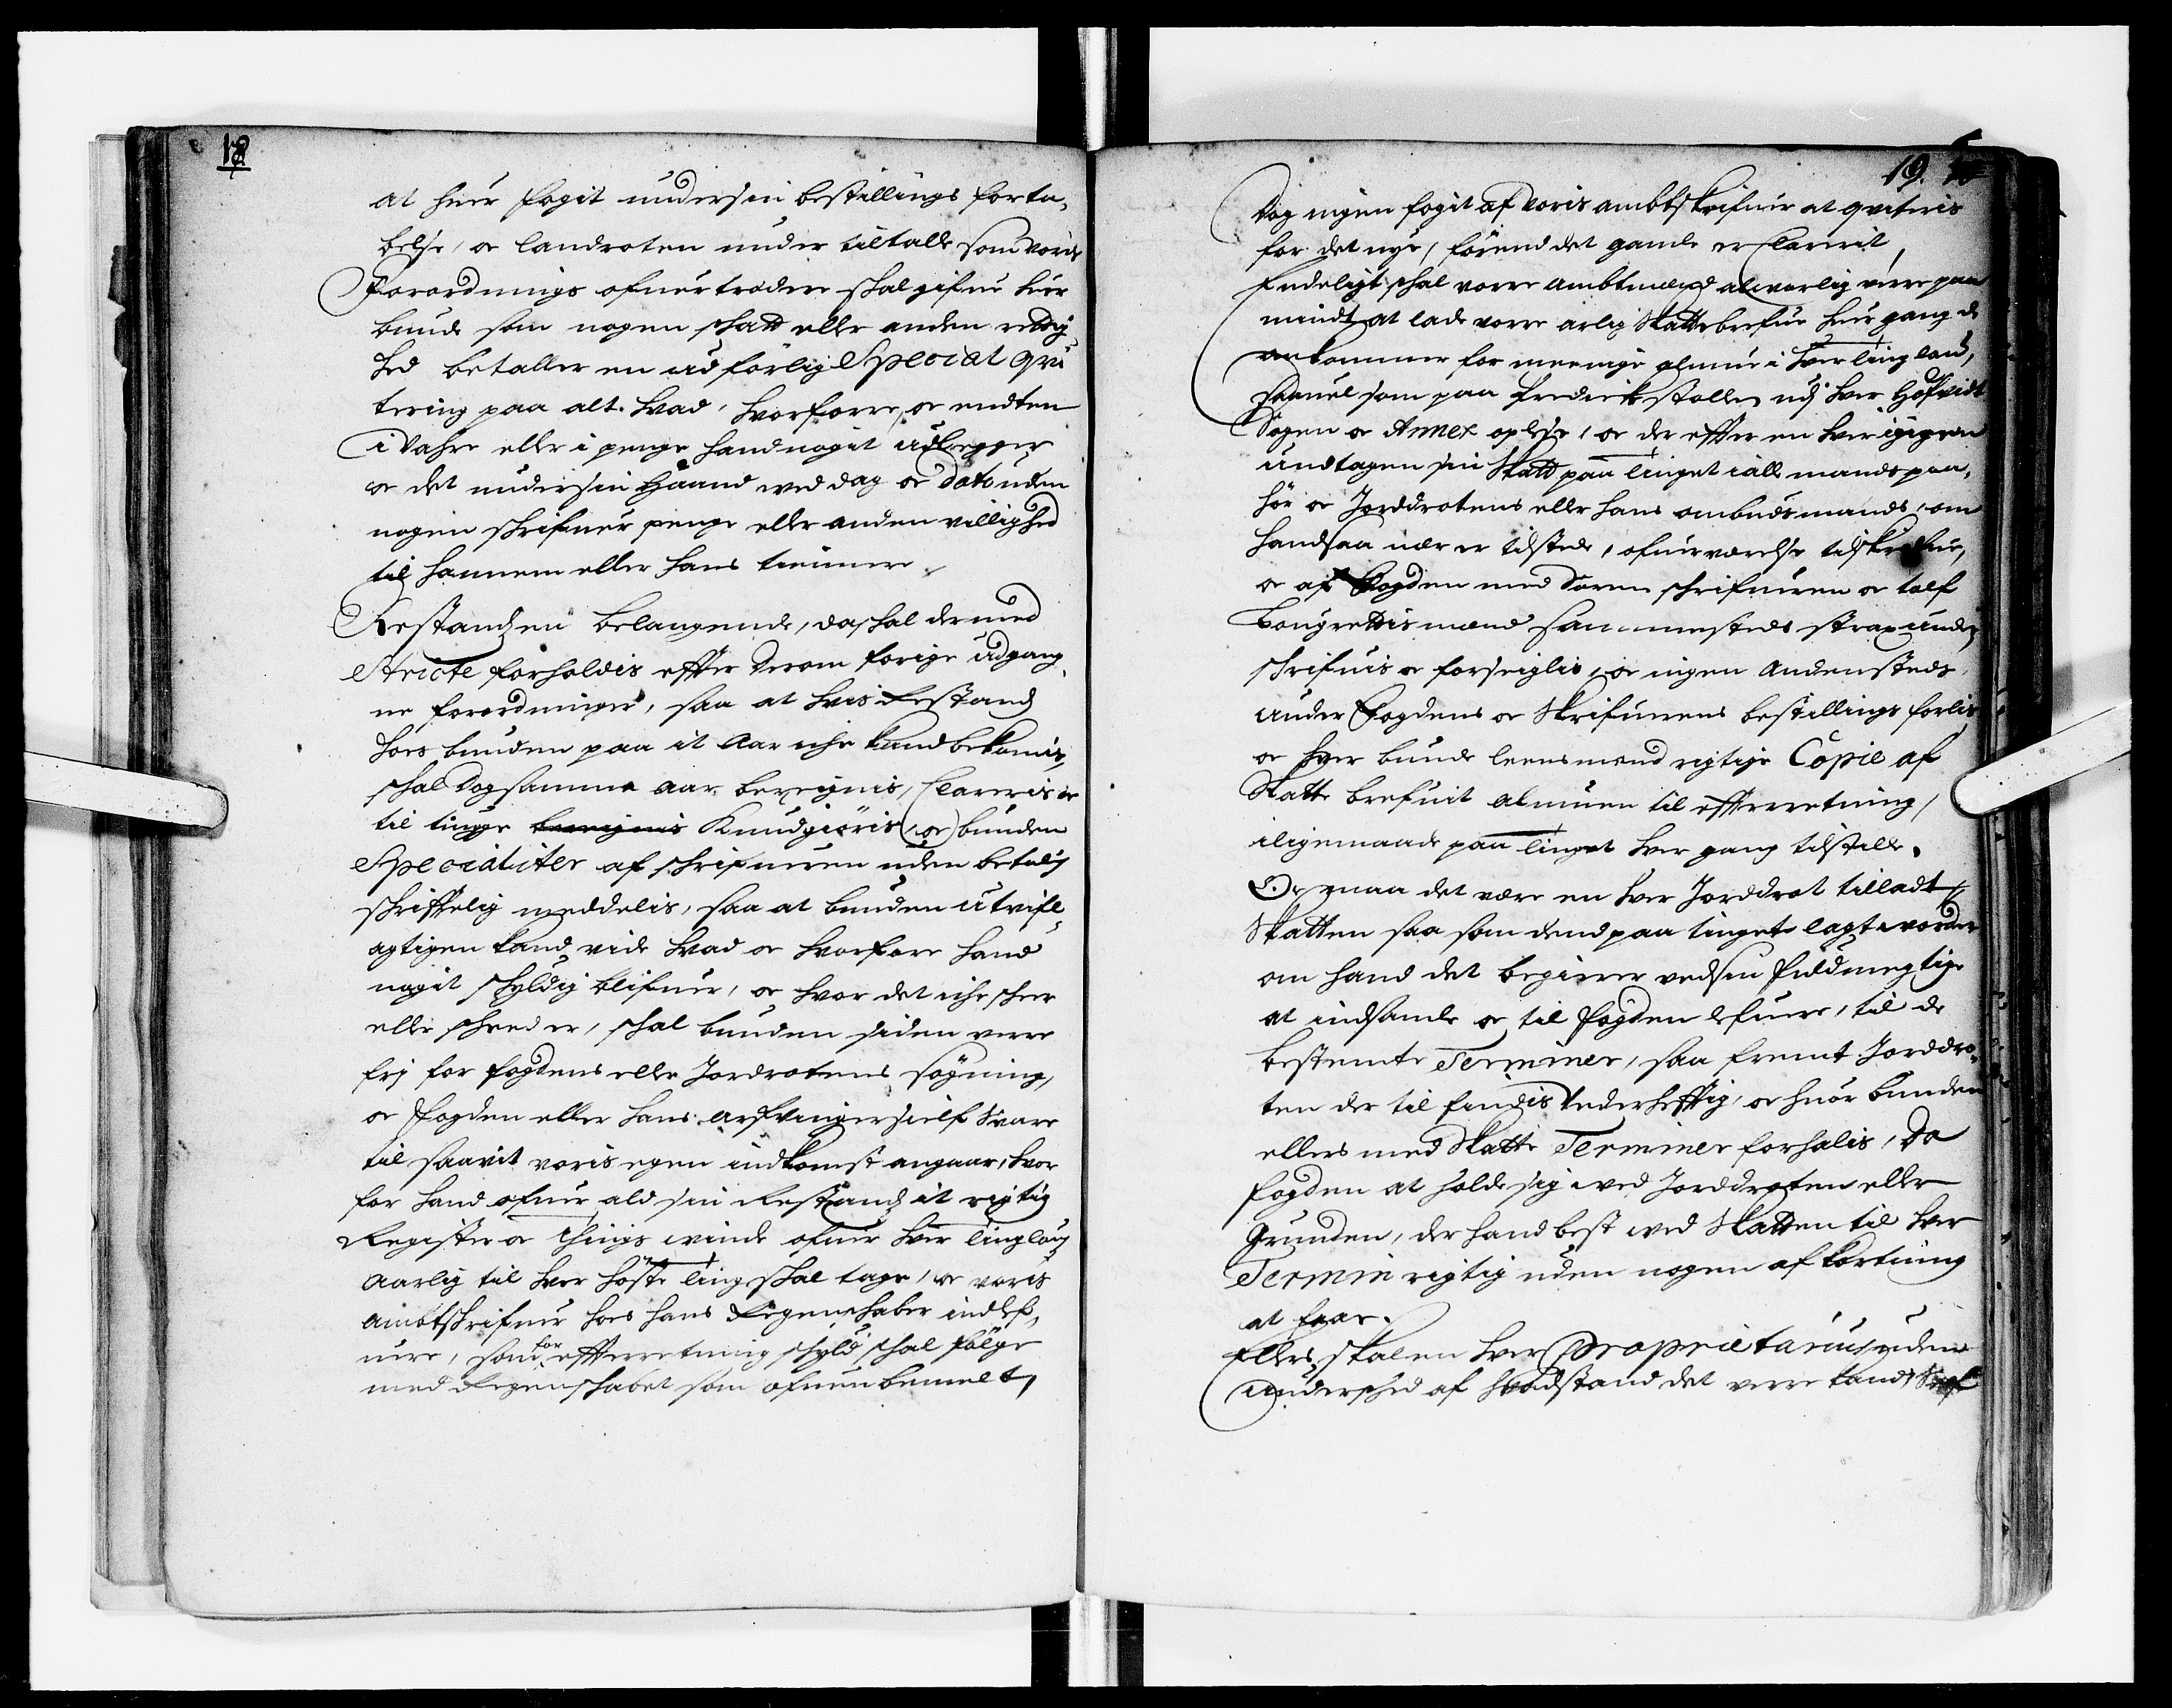 18
at huer fogit under sin bestillings forta,
belse, oc landraten under tiltalle som voris
Forordnings ofuertrædere skal gifue huer
bunde som nogen skatt eller anden rettig
hed betaller en udförlig Special qvi
tering paa alt hvad, hvorforre, oc endten
i Vahre eller i penge hand nogit udlegger
oc det under sin Haand med dag oc dato uden
nogen schrifuer penge eller anden villighed
til hannem eller hans tiennere
Restanzen belangende, da skal dermed
Stricte forholdis effter derom forige udgang
ne forordninger, saa at hvis Restanz
hoes bunden paa it Aar iche kand bekomis,
skal dog samme aar bereignis, Clareris oc
til tinge bereignis Kundgiöris, oc bunden
Specialiter af schrifueren uden betaling
schrifftelig meddelis, saa at bunden utvifl
agtigen kand vide hvad oc hvorfore hand
nogit skyldig blifuer, oc hvor det iche scheer
eller scheed er, skal bunden siden verre
frj for fogdens eller Jordrotens sögning,
oc fogden eller hans arfvinger sielf svare
til saavit voris egen indkomst angaar, hvor
for hand ofuer ald sin Restanz it rigtig
Register oc things winde ofuer hver tinglaug
Aarlig til hver höste ting skal tage, oc voris
Ambtschrifuer hoes hans Regenschaber indlef,
uere, som for effterretning skyld skal fölge
med Regenschabet som ofuenbemelt,
19.
Dog ingen fogit af voris ambtskrifuer at qviteris
for det nye, förend det gamle er Clarerit,
Endeligt skal vorre Ambtmænd alvorlig verre paa
mindt at lade vorre arlig Skattebrefue huer gang de
ankommer for meenige almue i hver ting laug,
saauel som paa Prædickestollen udj hver Hofvidt
Sogen oc Annex oplese, oc der effter en hver ingen
undtagen sin Skatt paa tinget i alle mands paa,
hör oc Jorddrotens eller hans ombudsmands, om
hand saa nær er tilstede, ofuerværelse tilskrifue,
oc af Fogden med Soren schrifueren oc tolf
Lougrettis mænd sammesteds strax under
schrifuis oc forseiglis, oc ingen Andensteds
under Fogdens oc Skrifuerens bestillings forlis
oc hver bunde leensmend rigtige Copie af
Skatte brefuit almuen til effterretning,
iligemaade paa tinget hver gang tilstille.
Oc maa det være en hver Jorddrot tilladt
Skatten saa som dend paa tinget lagt vorder
om hand det begierer ved sin fuldmegtige
at indsamle oc til fogden lefuere, til de
bestemte Terminer, saa fremt Jorddro,
ten der til findis Vederhefftig, oc huor bunden
ellers med Skatte Terminer forhalis, Da
fogden at holde sig ved Jorddroten eller
Grunden, der hand best ved Skatten til hver
Termin rigtig uden nogen afkortning
at faae.
Ellers skal en hver Proprietarius uden
underskeed af hvad stand det verre kand